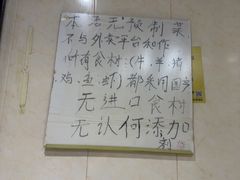 本店无预制菜
不与外卖平台和作
所有食材:(牛、羊、猪
鸡、鱼、虾)都采用国产
无进口食材
无认何添加
剂